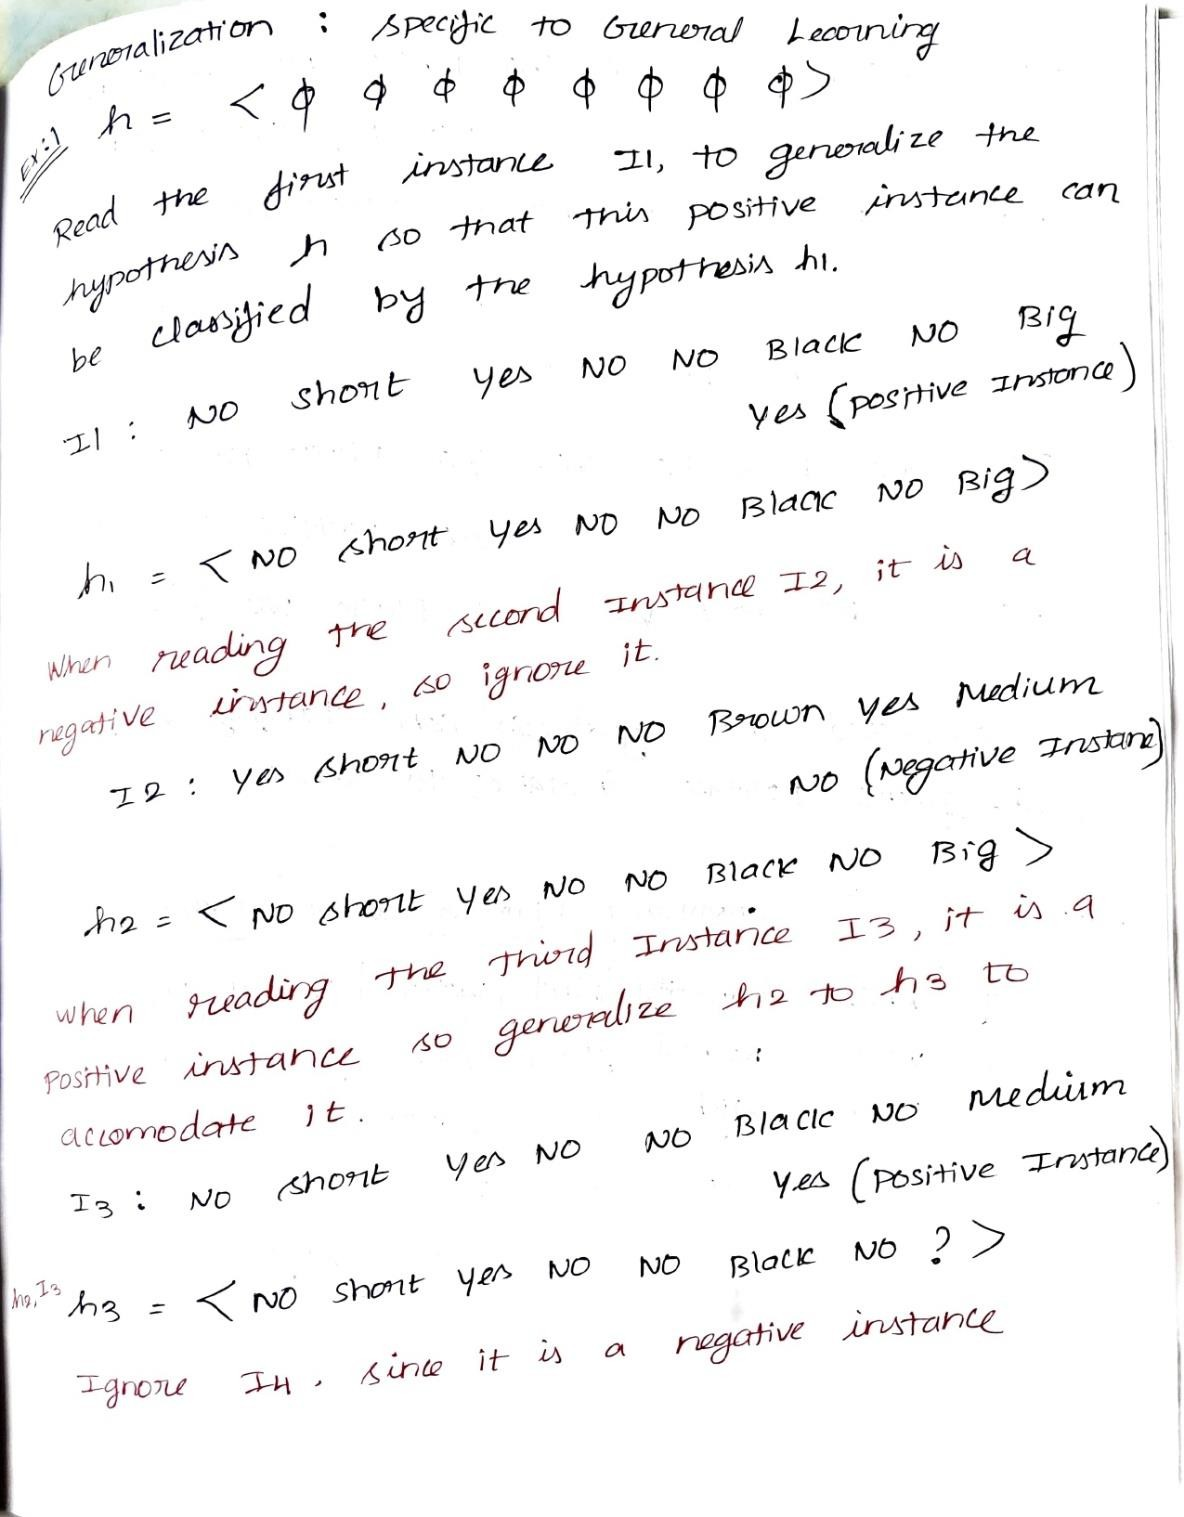 Generalization : specific to General Learning
Ex:1 h = < ϕ ϕ ϕ ϕ ϕ ϕ ϕ ϕ >
Read the first instance I1, to generalize the
hypothesis h so that this positive instance can
be classified by the hypothesis h1.
I1 : NO short yes NO NO Black NO Big
yes (positive Instance)
h1 = < NO short yes NO NO Black NO Big>
When reading the second Instance I2, it is a
negative instance, so ignore it.
I2 : yes short NO NO NO Brown yes Medium
NO (Negative Instane)
h2 = < NO short yes NO NO Black NO Big >
when reading the third Instance I3, it is a
Positive instance so generalize h2 to h3 to
accomodate it.
I3 : NO short yes NO NO Black NO medium
yes (Positive Instance)
h2, I3 h3 = < NO short yes NO NO Black NO ? >
Ignore I4, since it is a negative instance